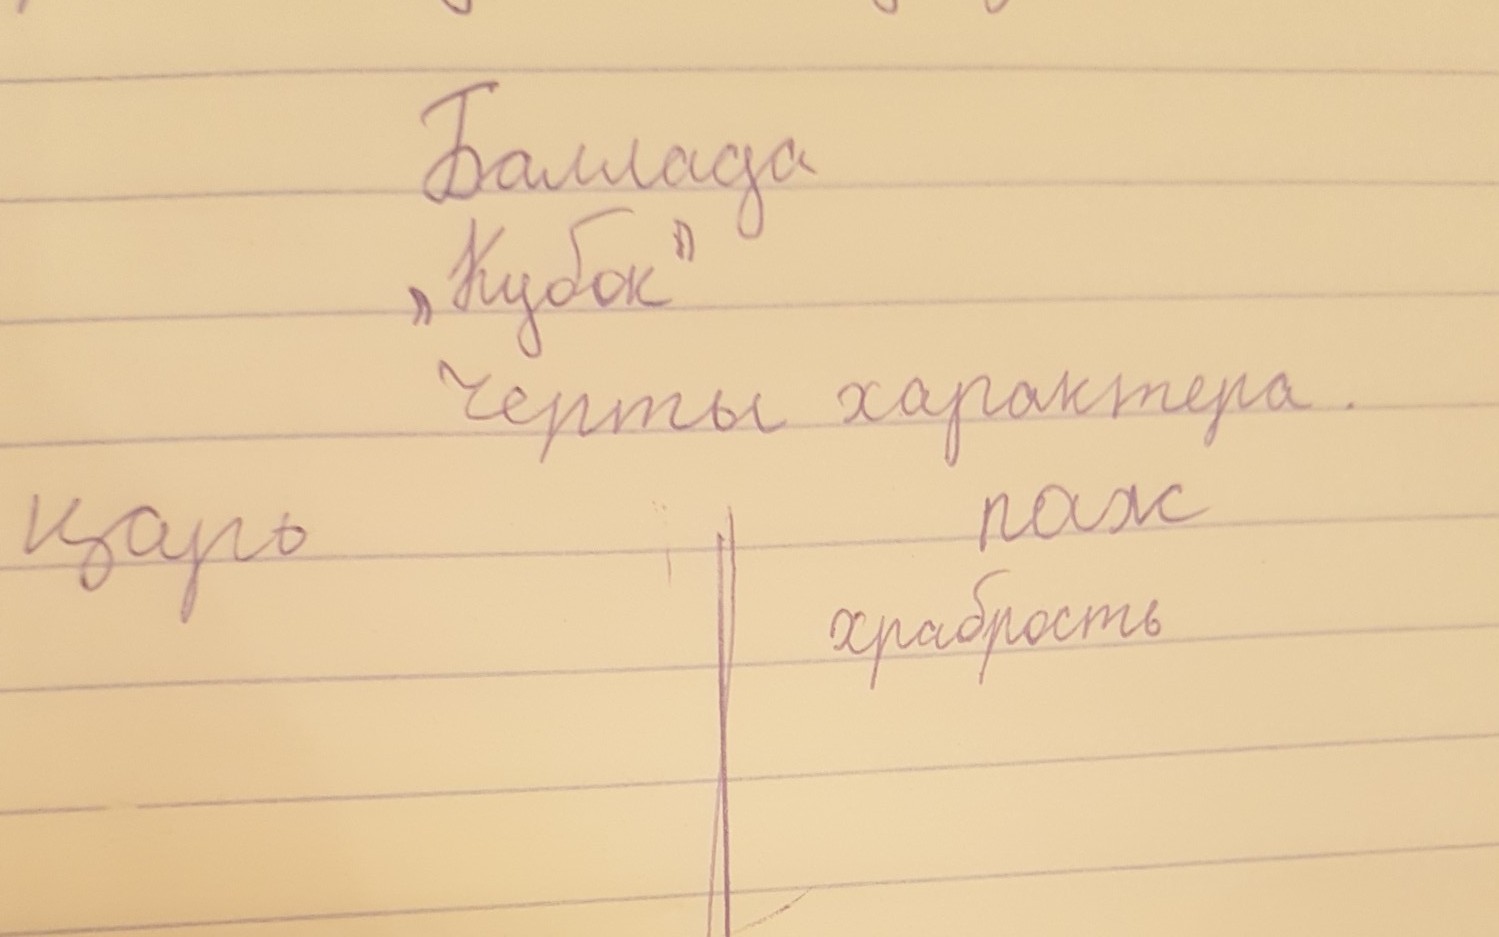 Баллада
„Кубок"
Черты характера.
царь паж
храбрость